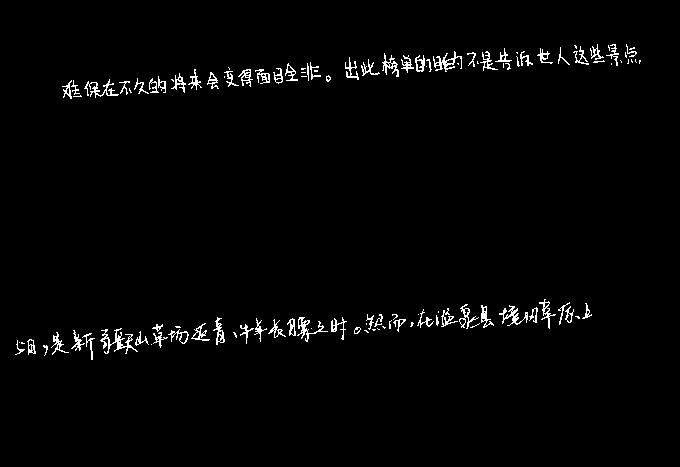 难保在不久的将来会变得面目全非。出此榜单的目的不是告诉世人这些景点,
5月,是新疆山草场返青、牛羊长膘之时。然而,在温泉县境内草原上